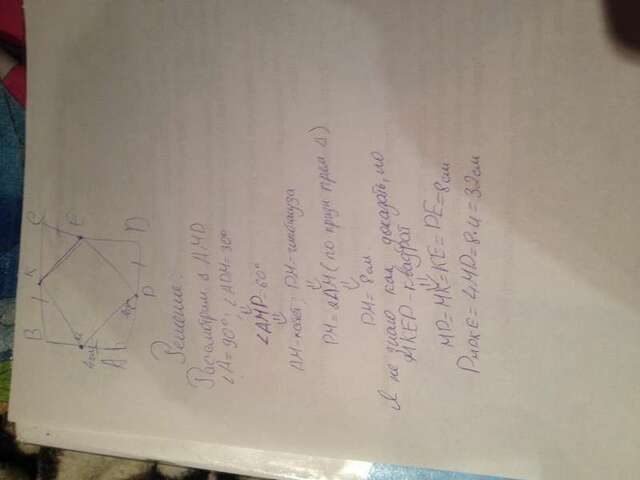 B K C
M E
4см
A P D
30°
Решение:
Рассмотрим Δ AMP
∠A=90°; ∠APM=30°
⇓
∠AMP=60°
⇓
AM-катет; PM-гипотенуза
⇓
PM=2AM (по призн прям Δ)
⇓
PM=8см
Я не знаю как доказать, но
MKEP-квадрат
⇓
MP=MK=KE=PE=8см
Pмкре=4MP=8·4=32см